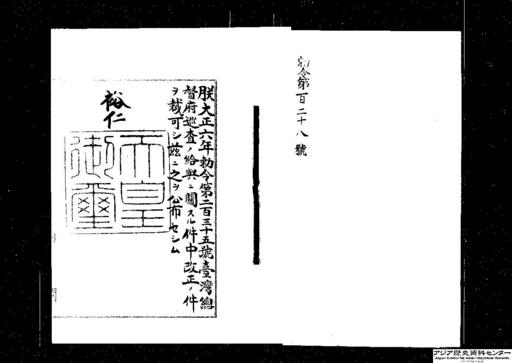 勅令第百二十八號
朕大正六年勅令第二百三十五號臺灣總
督府巡査ノ給與ニ關スル件中改正ノ件
ヲ裁可シ茲ニ之ヲ公布セシム
裕仁
天皇
御璽
アジア歴史資料センター
Japan Center for Asian Historical Records